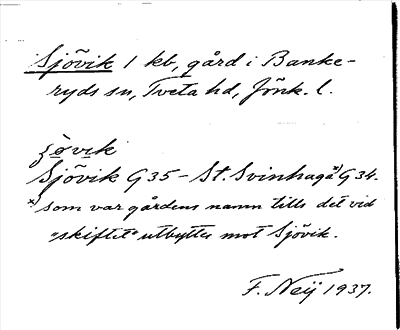 Sjövik 1 kb, gård i Banke-
ryds sn, Tveta hd, Jönk. l.
ʃø̀vik
Sjövik G35 – St. Svinhaga x) G34.
x) som var gårdens namn tills det vid
"skiftet" utbyttes mot Sjövik.
F. Neij 1937.